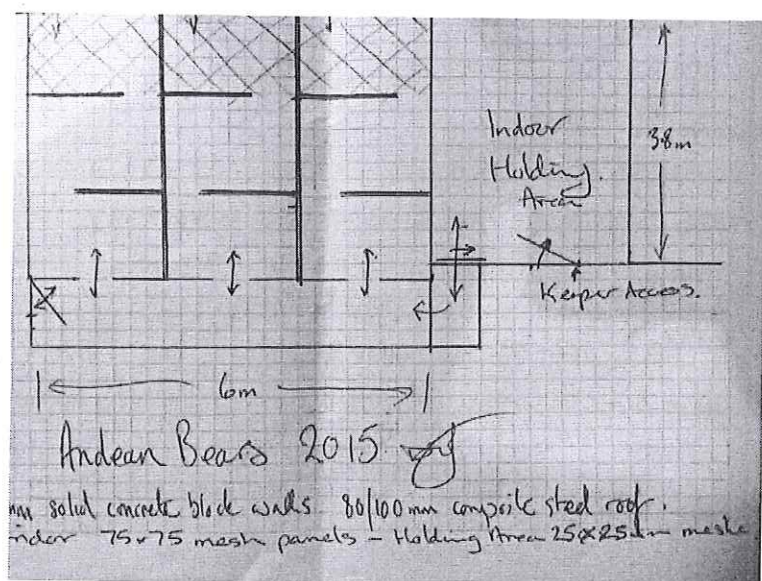 Indoor
Holding.
Area
3.8m
Keeper Access.
6m
Andean Bears 2015
mm solid concrete block walls. 80/100mm composite steel roof.
75x75 mesh panels - Holding Area 25x25mm mesh